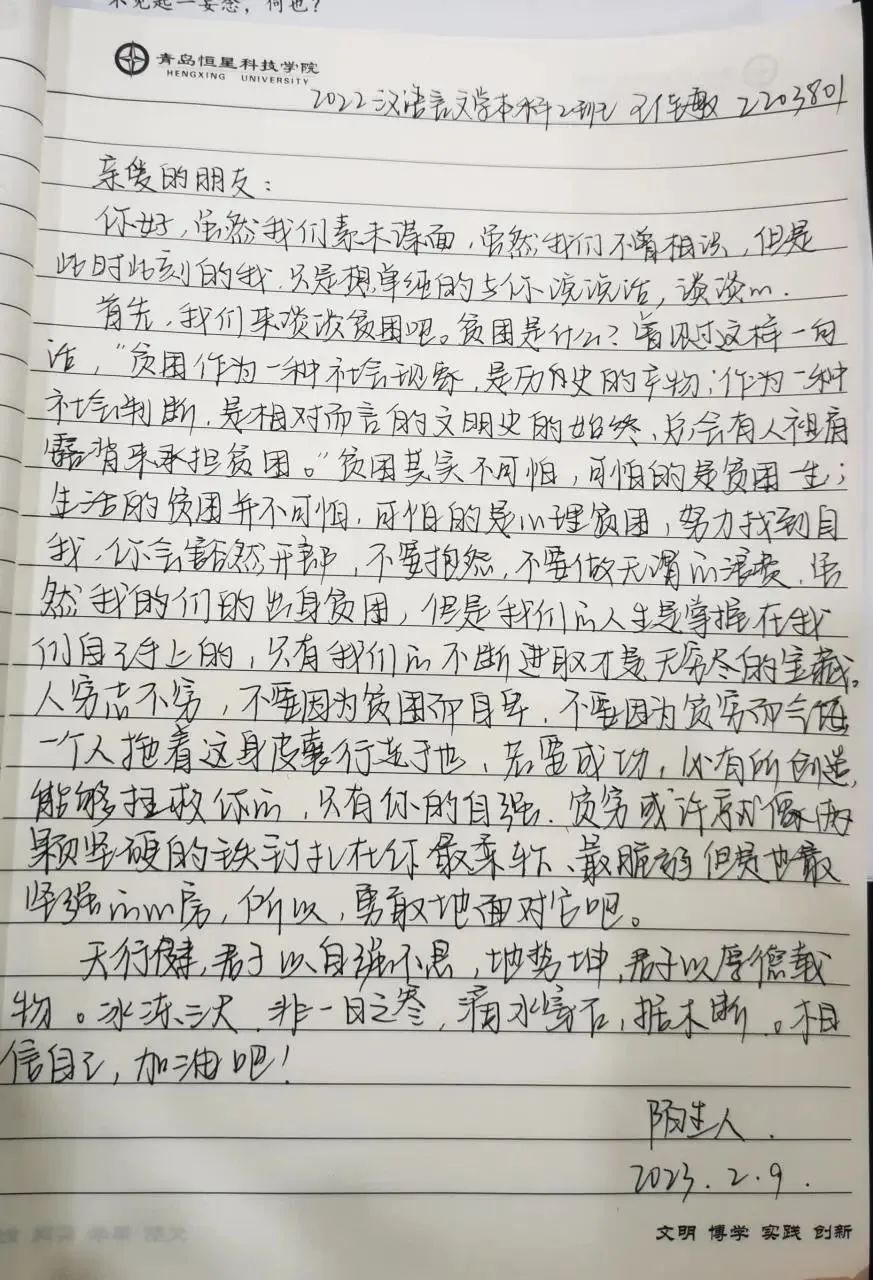 不见起一妄念，何也？
青岛恒星科技学院
HENGXING UNIVERSITY
2022汉语言文学本科2班 敏 2203801
亲爱的朋友：
你好，虽然我们素未谋面，虽然我们不曾相识，但是
此时此刻的我，只是想单纯的与你说说话，谈谈心.
首先，我们来谈谈贫困吧。贫困是什么？曾见过这样一句
话，“贫困作为一种社会现象，是历史的产物；作为一种
社会判断，是相对而言的文明史的始终、总会有人袒胸
露背来承担贫困。”贫困其实不可怕，可怕的是贫困一生；
生活的贫困并不可怕，可怕的是心理贫困，努力找到自
我，你会豁然开朗，不要抱怨，不要做无谓的浪费，虽
然我的们的出身贫困，但是我们的人生是掌握在我
们自己手上的，只有我们的不断进取才是无穷尽的宝藏。
人穷志不穷，不要因为贫困而自卑，不要因为贫穷而气馁
一个人拖着这身皮囊行走于世，若要成功，必有所创造，
能够拯救你的，只有你的自强、贫穷或许就像两
颗坚硬的铁钉扎在你最柔软、最脆弱但是也最
坚强的心房，所以，勇敢地面对它吧。
天行健，君子以自强不息，地势坤，君子以厚德载
物。冰冻三尺，非一日之寒，滴水穿石，据木断。相
信自己，加油吧！
陌生人.
2023.2.9.
文明 博学 实践 创新